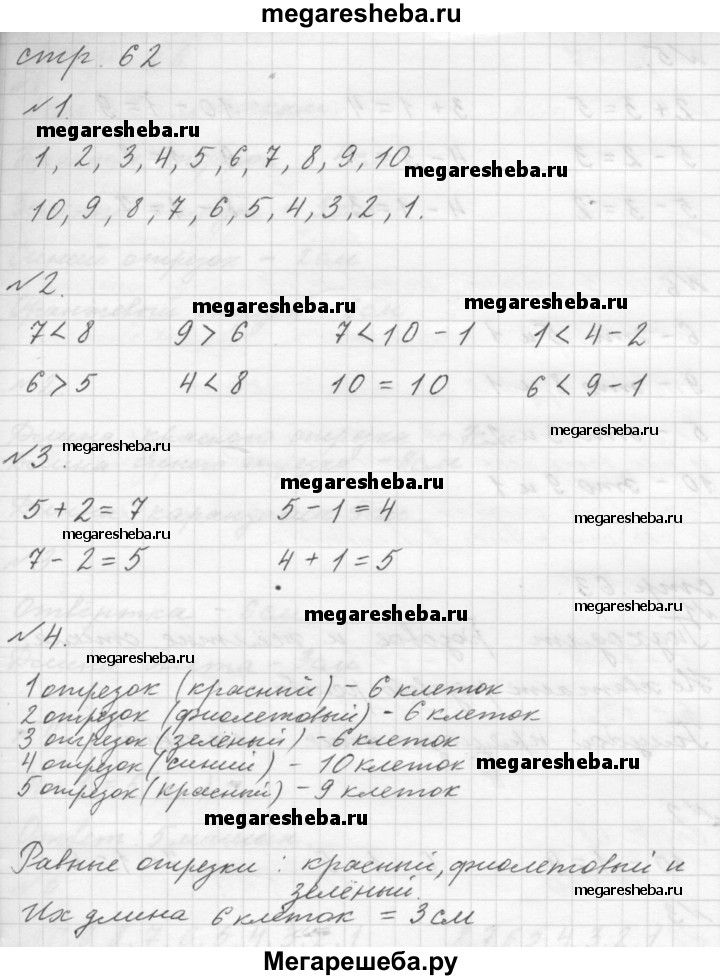 megaresheba.ru
стр. 62
№1.
megaresheba.ru
1, 2, 3, 4, 5, 6, 7, 8, 9, 10
megaresheba.ru
10, 9, 8, 7, 6, 5, 4, 3, 2, 1.
№2.
megaresheba.ru megaresheba.ru
7 < 8 9 > 6 7 < 10 - 1 1 < 4 - 2
6 > 5 4 < 8 10 = 10 6 < 9 - 1
megaresheba.ru megaresheba.ru
№3.
megaresheba.ru
5 + 2 = 7 5 - 1 = 4
megaresheba.ru megaresheba.ru
7 - 2 = 5 4 + 1 = 5
megaresheba.ru
№4.
megaresheba.ru
1 отрезок (красный) - 6 клеток
2 отрезок (фиолетовый) - 6 клеток
3 отрезок (зелёный) - 6 клеток
4 отрезок (синий) - 10 клеток megaresheba.ru
5 отрезок (красный) - 9 клеток
megaresheba.ru
Равные отрезки : красный, фиолетовый и
зелёный.
megaresheba.ru
Их длина 6 клеток = 3 см
megaresheba.ru
Мегарешеба.ру